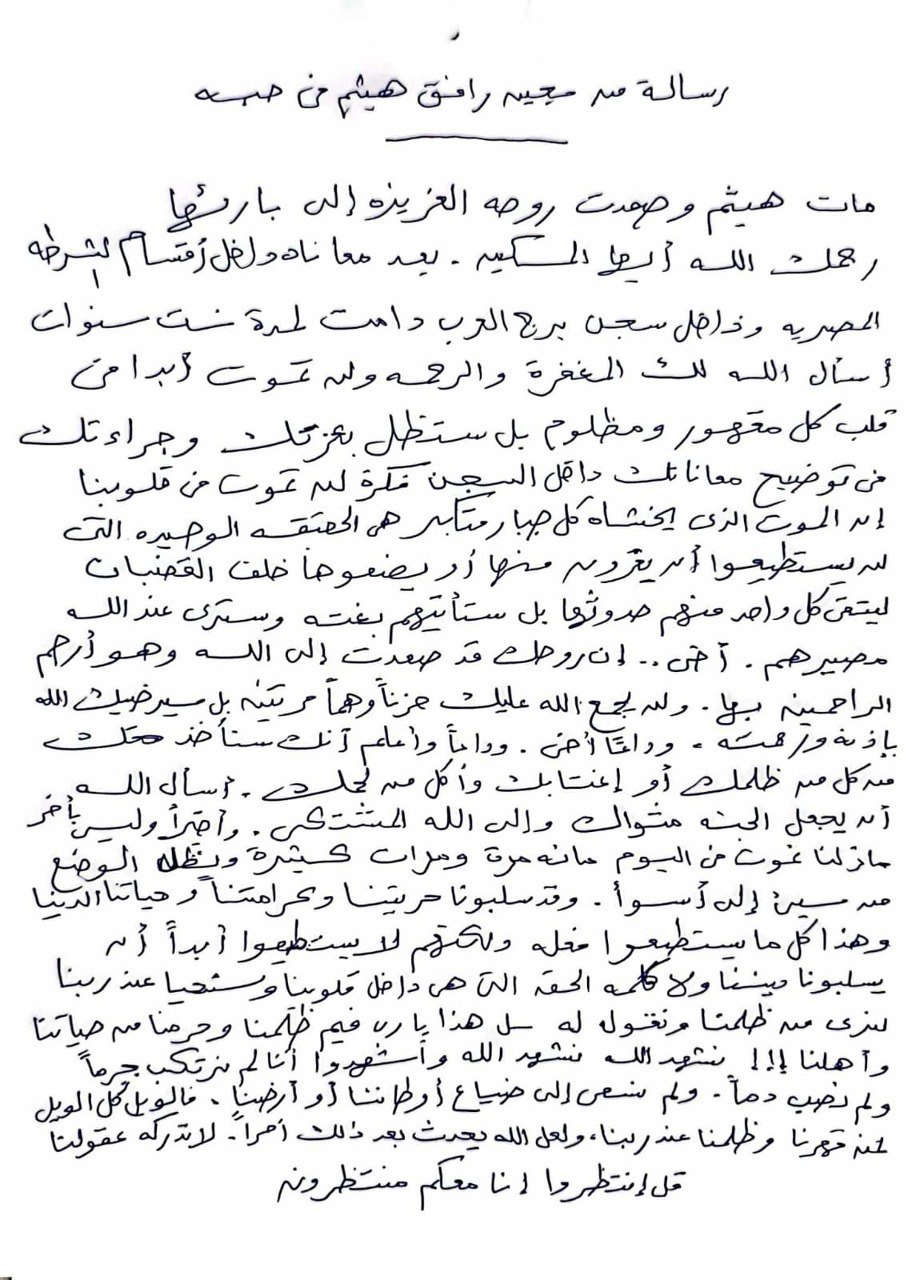 رسالة من سجين رافق هيثم في حبسه
مات هيثم وصعدت روحه العزيزة إلى بارئها
رحمك الله أيها المسكين . بعد معاناه داخل أقسام الشرطه
المصريه وداخل سجن برج العرب دامت لمدة ست سنوات
أسأل الله لك المغفرة والرحمه ولن تموت أبدا من
قلب كل مقهور ومظلوم بل ستظل بعزتك وجراءتك
فى توضيح معاناتك داخل السجن فكرة لن تموت من قلوبنا
إن الموت الذى يخشاه كل جبار متكبر هى الحقيقه الوحيده التى
لن يستطيعوا أن يفرون منها أو يضعوها خلف القضبان
ليتقى كل واحد منهم حدوثها بل ستأتيهم بغته وسترى عند الله
مصيرهم . أخى .. إن روحك قد صعدت إلى الله وهو أرحم
الراحمين بها . ولن يجمع الله عليك حزناً وهماً مرتين بل سيرضيك الله
بإذنه ورحمته . وداعًا أخى . وداعاً وأعلم أنك ستأخذ حقك
من كل من ظلمك أو إغتابك وأكل من لحمك . أسأل الله
أن يجعل الجنه مثواك وإلى الله المشتكى . وأخيراً وليس بأخر
مازلنا نموت فى اليوم مائه مرة ومرات كثيرة ويظل الوضع
من سيئ إلى أسوأ . وقد سلبونا حريتنا وكرامتناً وحياتنا الدنيا
وهذا كل ما يستطيعوا فعله ولكنهم لا يستطيعوا أبداً أن
يسلبونا ديننا ولا كلمه الحق التى هى داخل قلوبنا وسنحيا عند ربنا
لنرى من ظلمنا ونقول له سل هذا يارب فيم ظلمنا وحرمنا من حياتنا
وأهلنا !!! نشهد الله نشهد الله وأشهدوا أنا لم نرتكب جرماً
ولم نصب دماً . ولم نسعى إلى ضياع أوطاننا أو أرضناً . فالويل كل الويل
لمن قهرنا وظلمنا عند ربنا، ولعل الله يحدث بعد ذلك أمراً . لا تدركه عقولنا
قل إنتظروا إنا معكم منتظرون